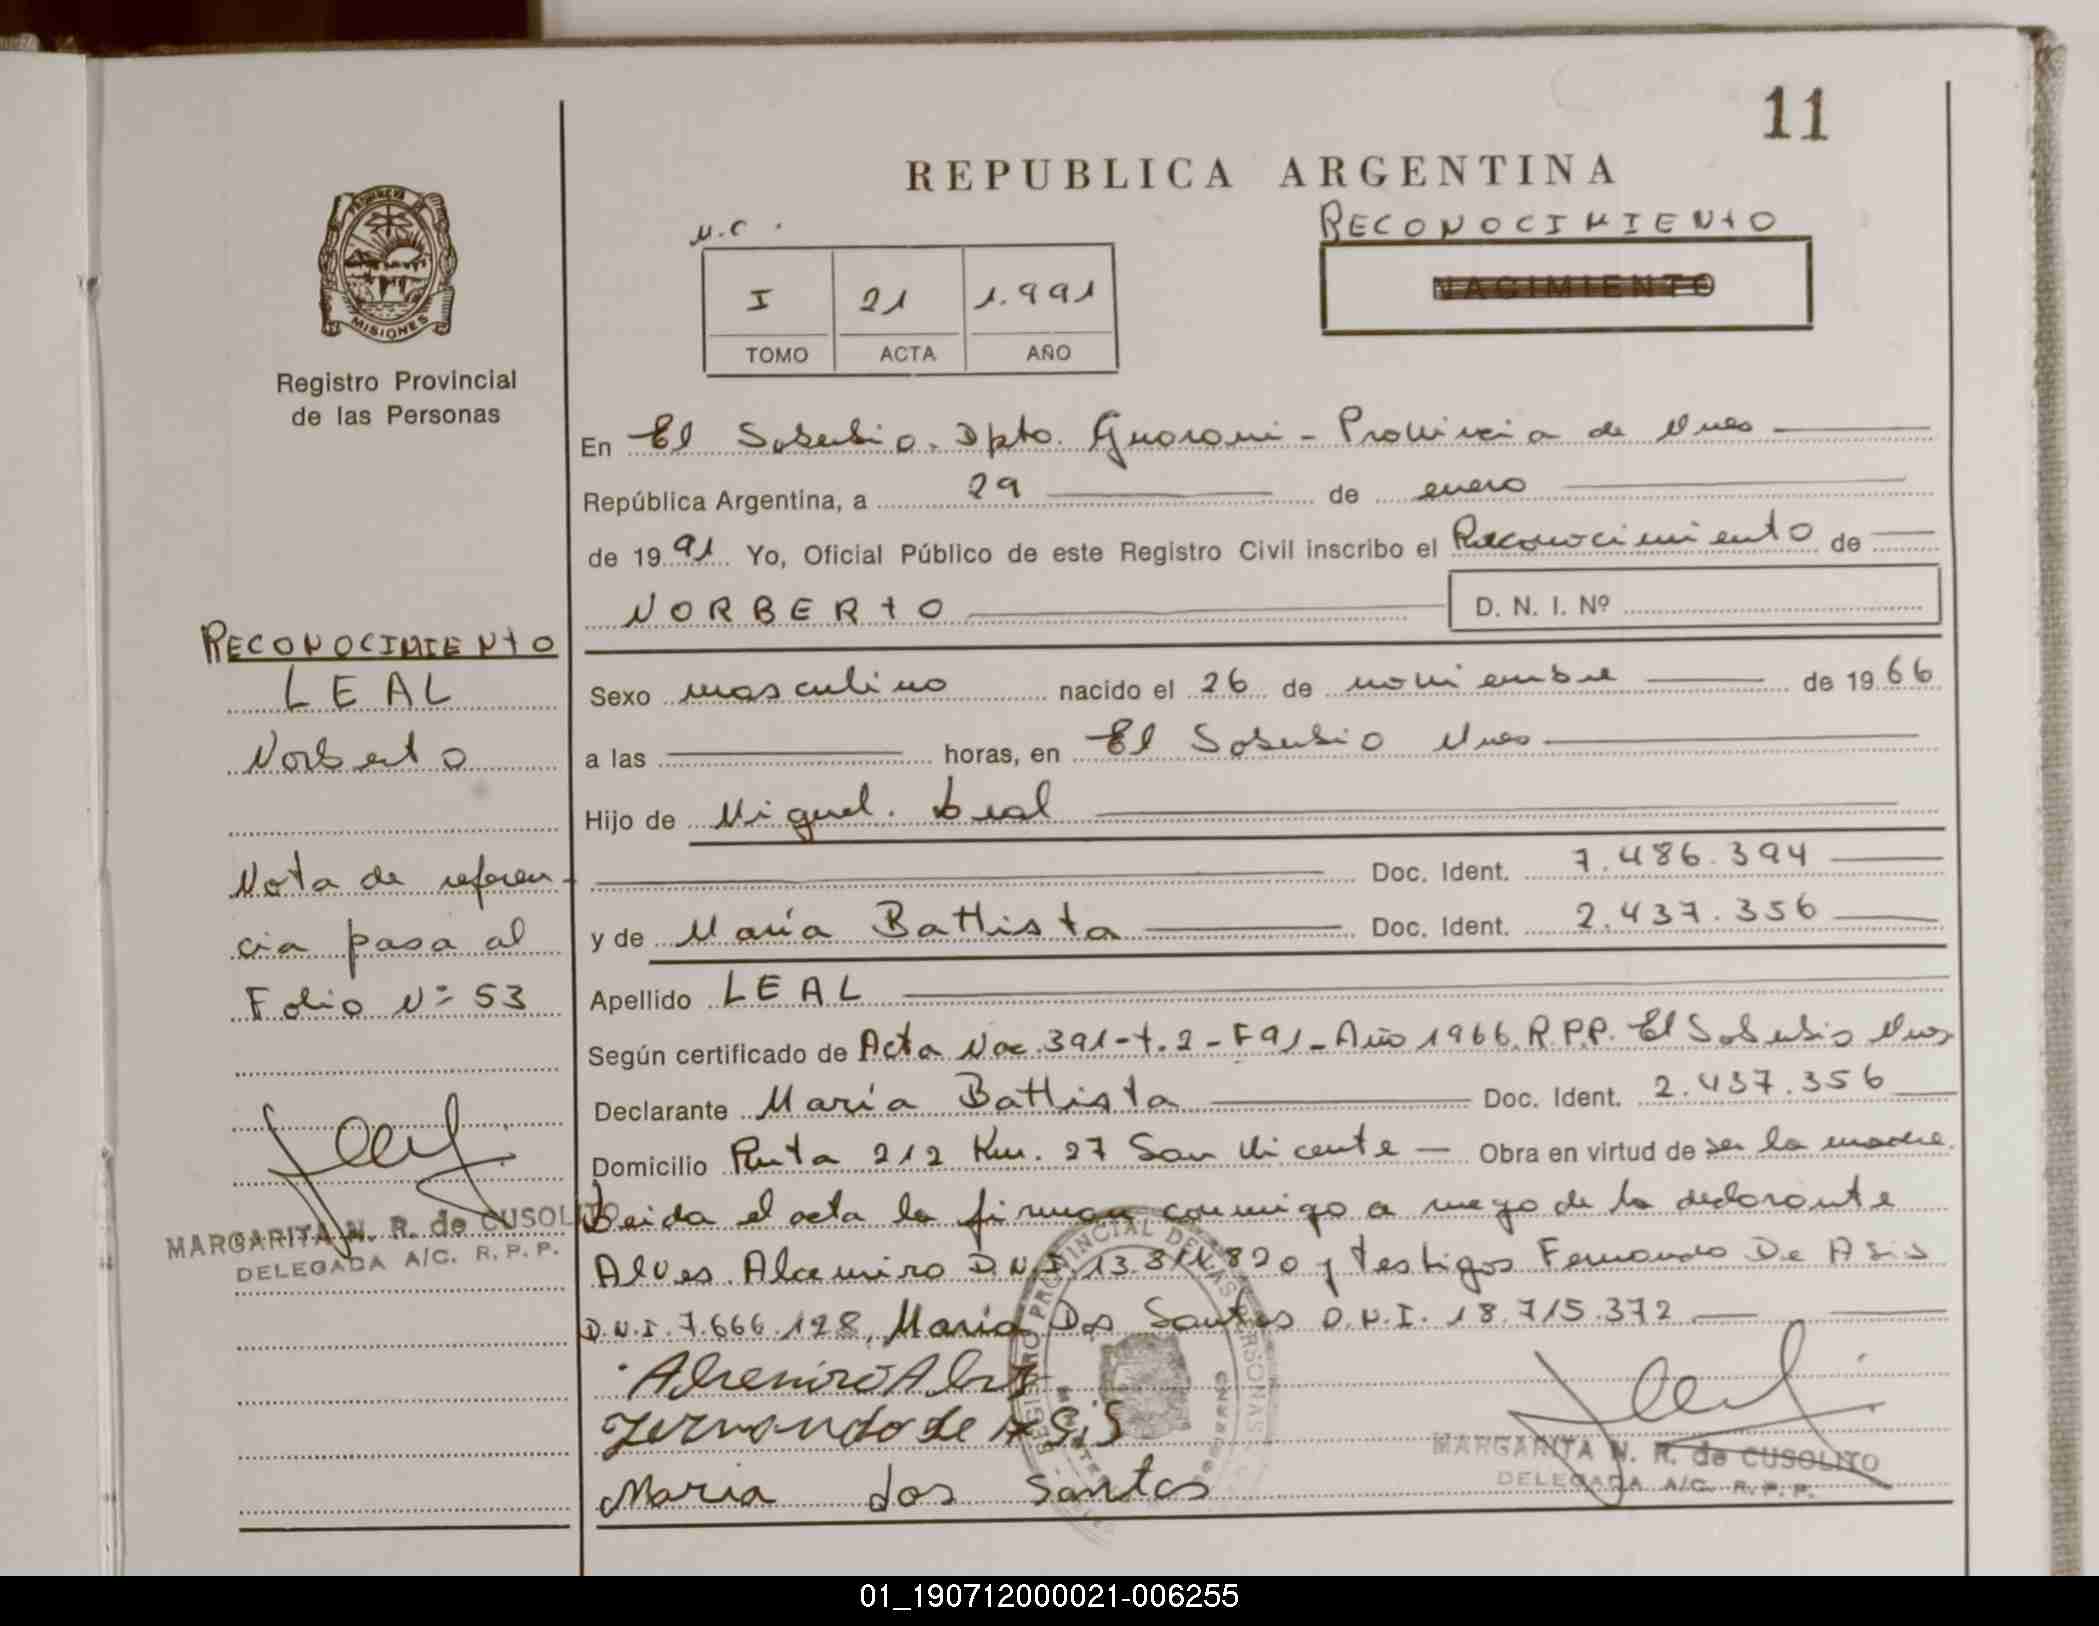 11
REPUBLICA ARGENTINA
RECONOCIMIENTO
NACIMIENTO
M.C.
I 21 1.991
TOMO ACTA AÑO
PROVINCIA
MISIONES
Registro Provincial
de las Personas
En El Soberbio. Dpto. Guarani - Provincia de Mnes
República Argentina, a 29 de enero
de 1991 Yo, Oficial Público de este Registro Civil inscribo el Reconocimiento de
NORBERTO D. N. I. Nº
Sexo masculino nacido el 26 de noviembre de 1966
a las horas, en El Soberbio Mnes
Hijo de Miguel. Leal
Doc. Ident. 7.486.394
y de María Battista Doc. Ident. 2.437.356
Apellido LEAL
Según certificado de Acta Nac. 391-t.2-F91-Año 1966. R.P.P. El Soberbio Mnes
Declarante María Battista Doc. Ident. 2.437.356
Domicilio Ruta 212 Km. 27 San Vicente Obra en virtud de ser la madre.
Leida el acta la firman conmigo a ruego de la declarante
Alves Alcemiro D.N.I. 13.311.820 y testigos Fernando De Asis
D.N.I. 7.666.128, María Dos Santos D.N.I. 18.715.372
Fernando de Asis
Maria dos Santos
MARGARITA N. R. de CUSOLITO
DELEGADA A/C. R. P. P.
RECONOCIMIENTO
LEAL
Norberto
Nota de referen-
cia pasa al
Folio Nº 53
MARGARITA N. R. de CUSOLITO
DELEGADA A/C. R. P. P.
REGISTRO PROVINCIAL DE LAS PERSONAS
01_190712000021-006255